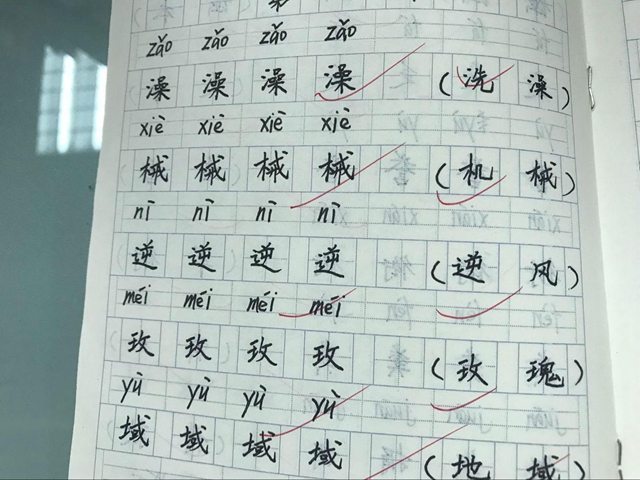 zǎo zǎo zǎo zǎo
澡 澡 澡 澡 (洗 澡)
xiè xiè xiè xiè
械 械 械 械 (机 械)
nì nì nì nì
逆 逆 逆 逆 (逆 风)
méi méi méi méi
玫 玫 玫 玫 (玫 瑰)
yù yù yù yù
域 域 域 域 (地 域)